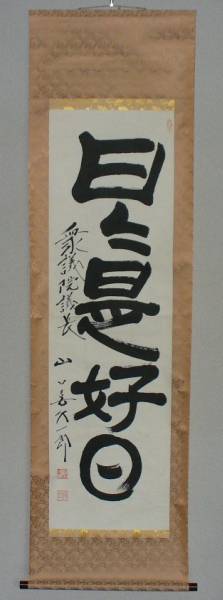 日々是好日
衆議院議長
山口喜久一郎